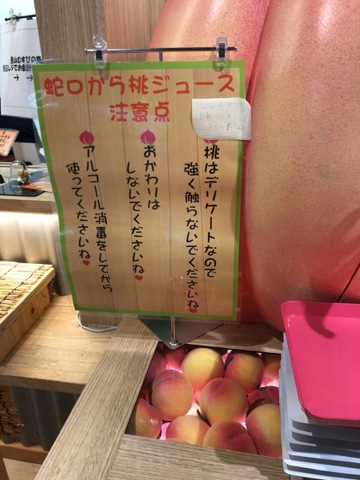 蛇口から桃ジュース
注意点
桃はデリケートなので
強く触らないでくださいね
おかわりは
しないでくださいね
アルコール消毒をしてから
使ってくださいね